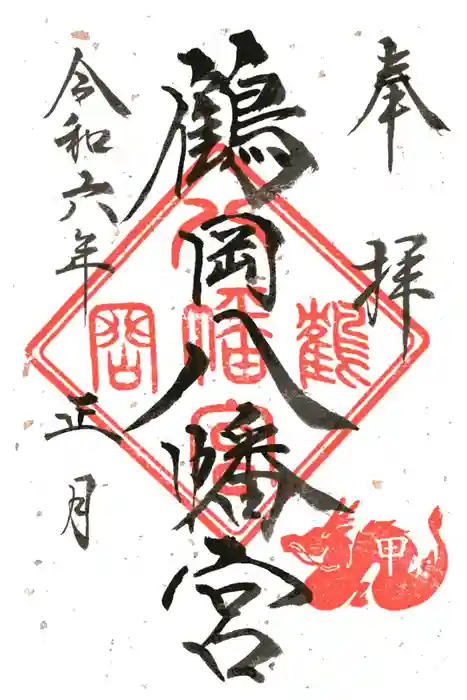 奉拝
鶴岡八幡宮
令和六年正月
鶴
岡
八幡宮
甲